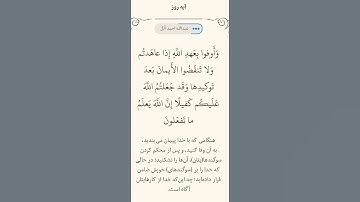 آیه روز
عبدالله احمد آلل
وَأَوفوا بِعَهدِ اللَّهِ إِذا عاهَدتُم
وَلا تَنقُضُوا الأَيمانَ بَعدَ
تَوكيدِها وَقَد جَعَلتُمُ اللَّهَ
عَلَيكُم كَفيلًا إِنَّ اللَّهَ يَعلَمُ
ما تَفعَلونَ
هنگامی که با خدا پیمان می‌بندید،
به آن وفا کنید، و پس از محکم کردن
سوگندهایتان، آن‌ها را نشکنید؛ در حالی
که خدا را بر (سوگندهای) خویش ضامن
قرار داده‌اید؛ چه این‌که خدا از کارهایتان
آگاه است.